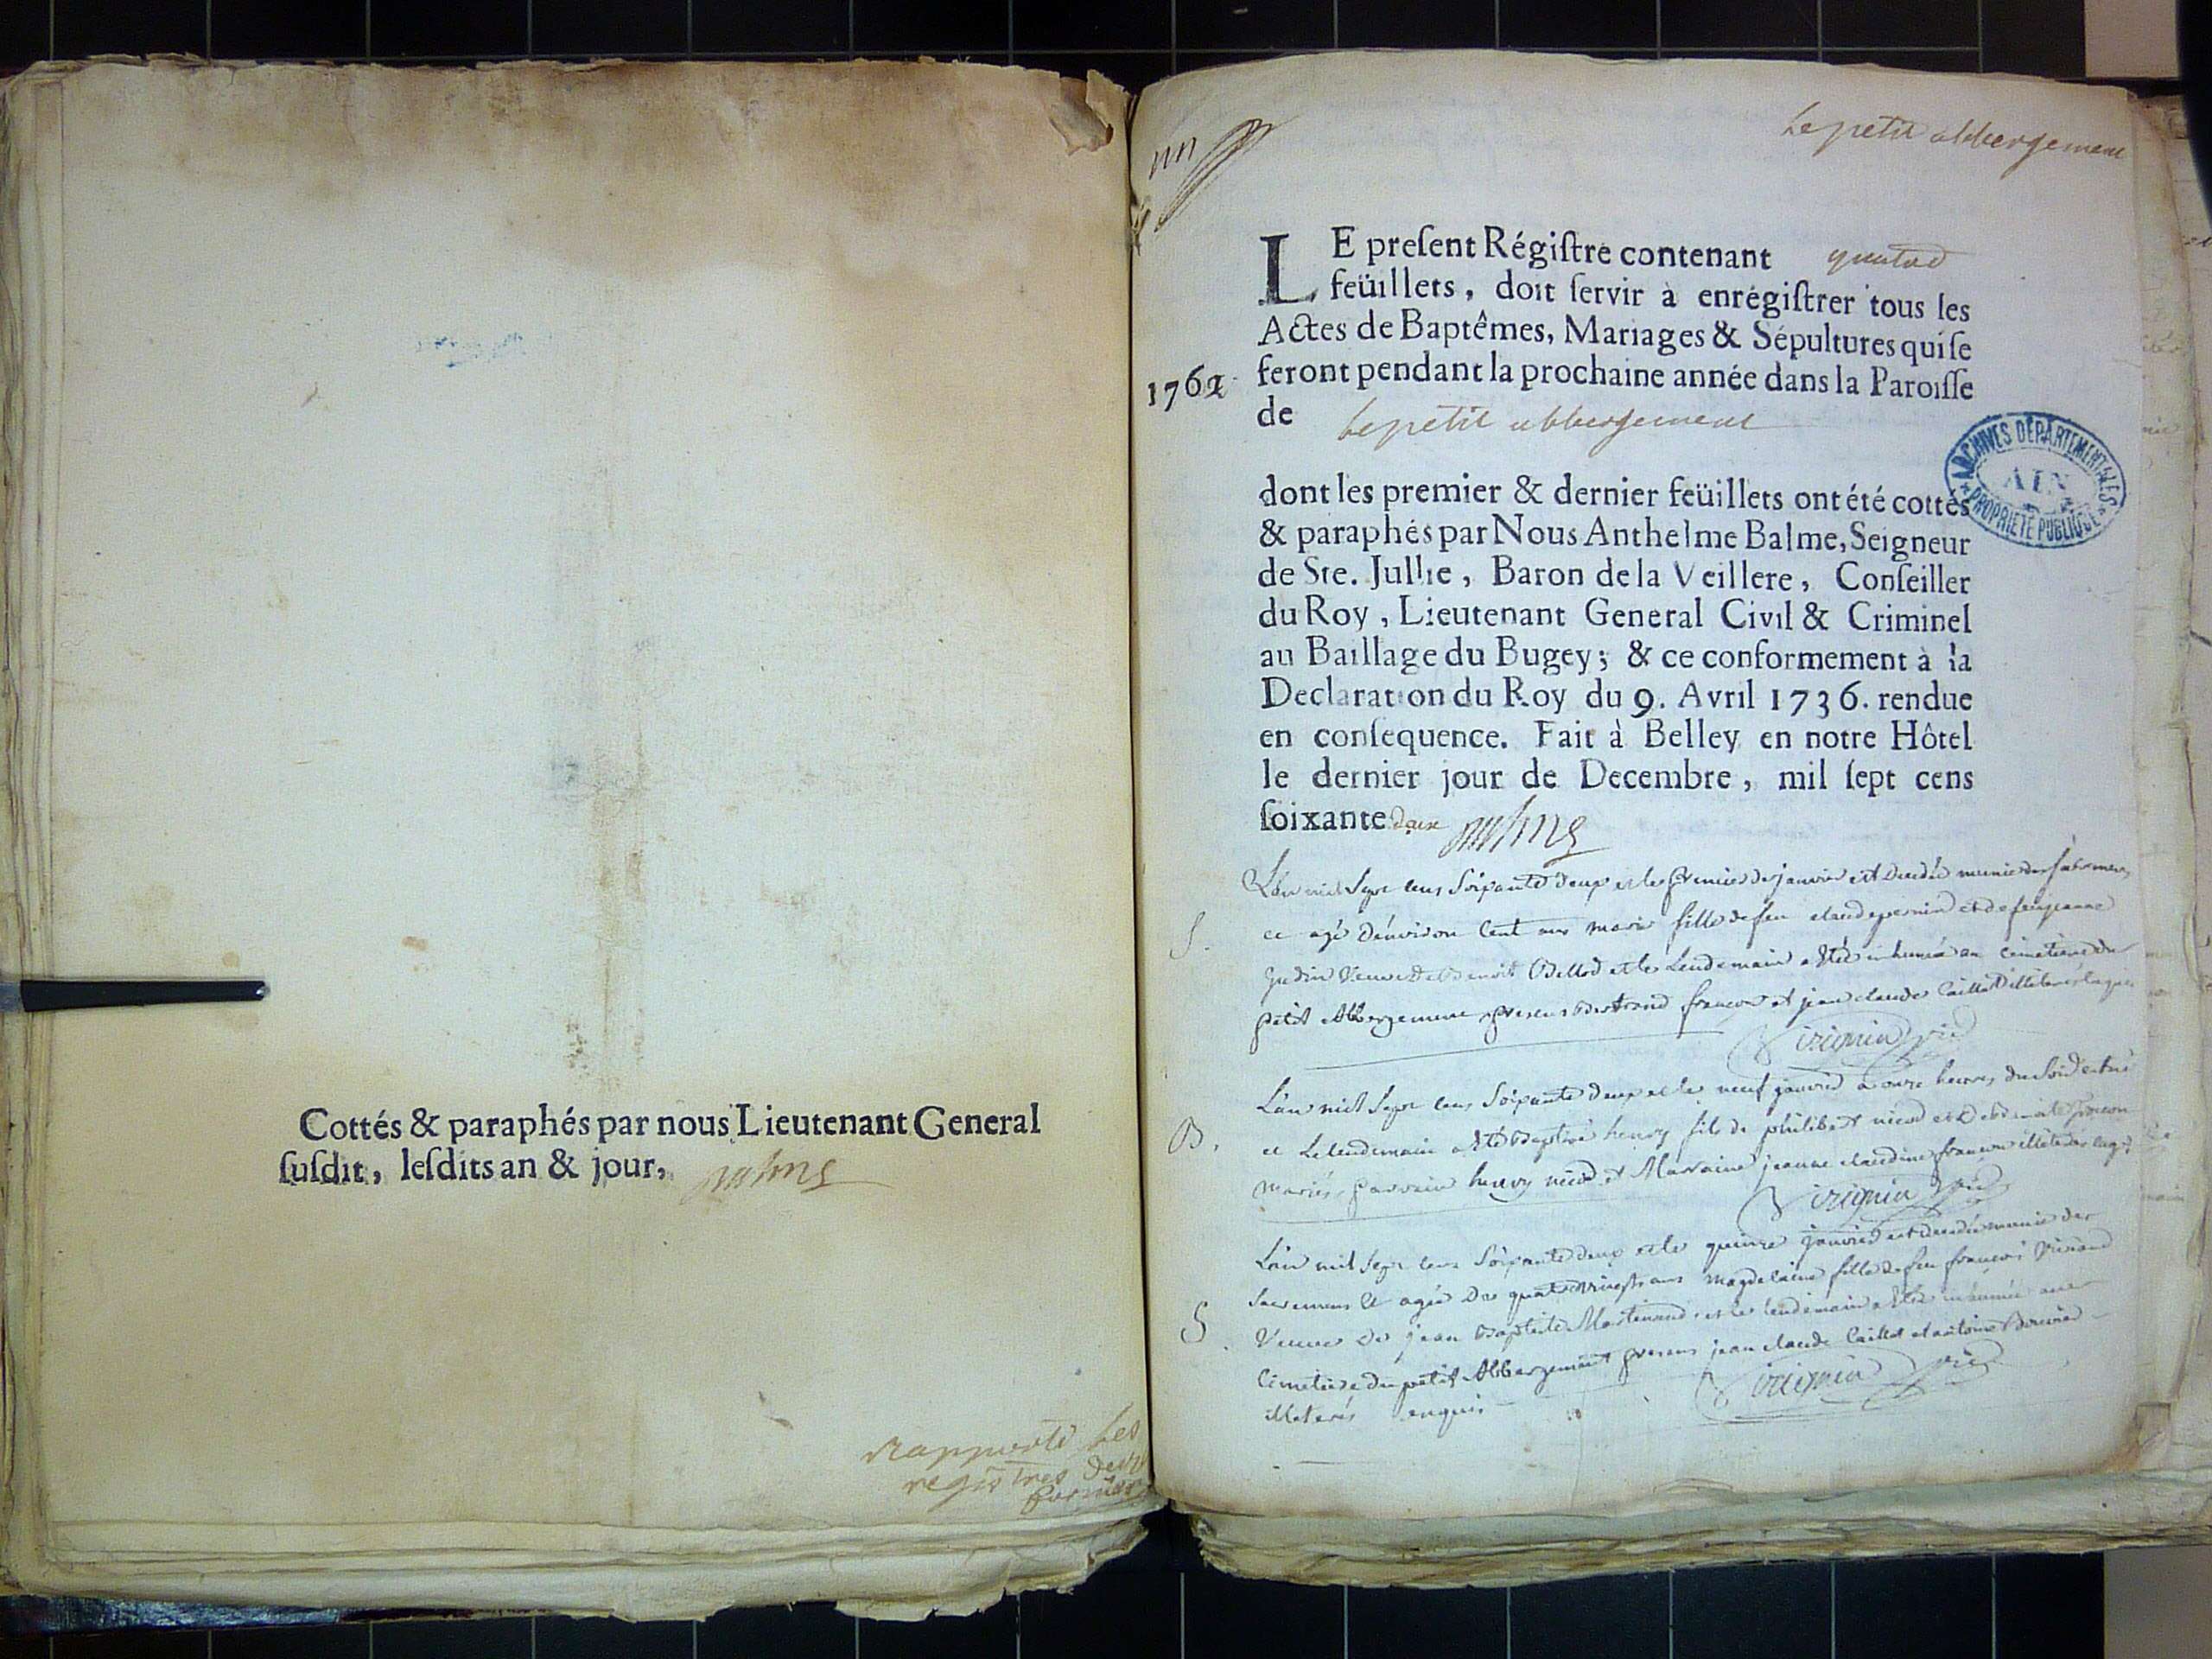 Cottés & paraphés par nous Lieutenant General
ſuſdit, leſdits an & jour,
Rapporté Les
registres
un
Le petit abbergement
LE preſent Régiſtre contenant quatre
feüillets, doit ſervir à enrégiſtrer tous les
Actes de Baptêmes, Mariages & Sépultures qui ſe
1762 feront pendant la prochaine année dans la Paroiſſe
de Le petit abbergement
ARCHIVES DÉPARTEMENTALES
AIN
PROPRIÉTÉ PUBLIQUE
dont les premier & dernier feüillets ont été cottés
& paraphés par Nous Anthelme Balme, Seigneur
de Ste. Jullie, Baron de la Veillere, Conſeiller
du Roy, Lieutenant General Civil & Criminel
au Baillage du Bugey; & ce conformement à la
Declaration du Roy du 9. Avril 1736. rendue
en conſequence. Fait à Belley en notre Hôtel
le dernier jour de Decembre, mil ſept cens
ſoixante deux
L'an mil Sept cens Soixante deux et le premier janvier est decedée munie des sacremens
S. et agée d'environ Cent ans marie fille de feu claude pernin et de feu jeanne
veuve de Benoit et le Lendemain a été inhumée au cimetiere du
petit Abbergement presens Bertrand francon et jean claude Caillat
L'an mil Sept cens Soixante deux et le neuf janvier a onze heures du Soir est né
B. et Le lendemain a été Baptisé henry fils de philibert niod et de francon
mariés parrain henry niod et Marraine jeanne claudine francon
L'an mil Sept cens Soixante deux et le quinze janvier est decedée munie des
Sacremens et agée de quatre vingts ans magdelaine fille de feu francois
S. Veuve de jean Baptiste Martinand et le lendemain a été inhumée au
Cimetiere du petit Abbergement presens jean claude Caillat et antoine
illeterés enquis